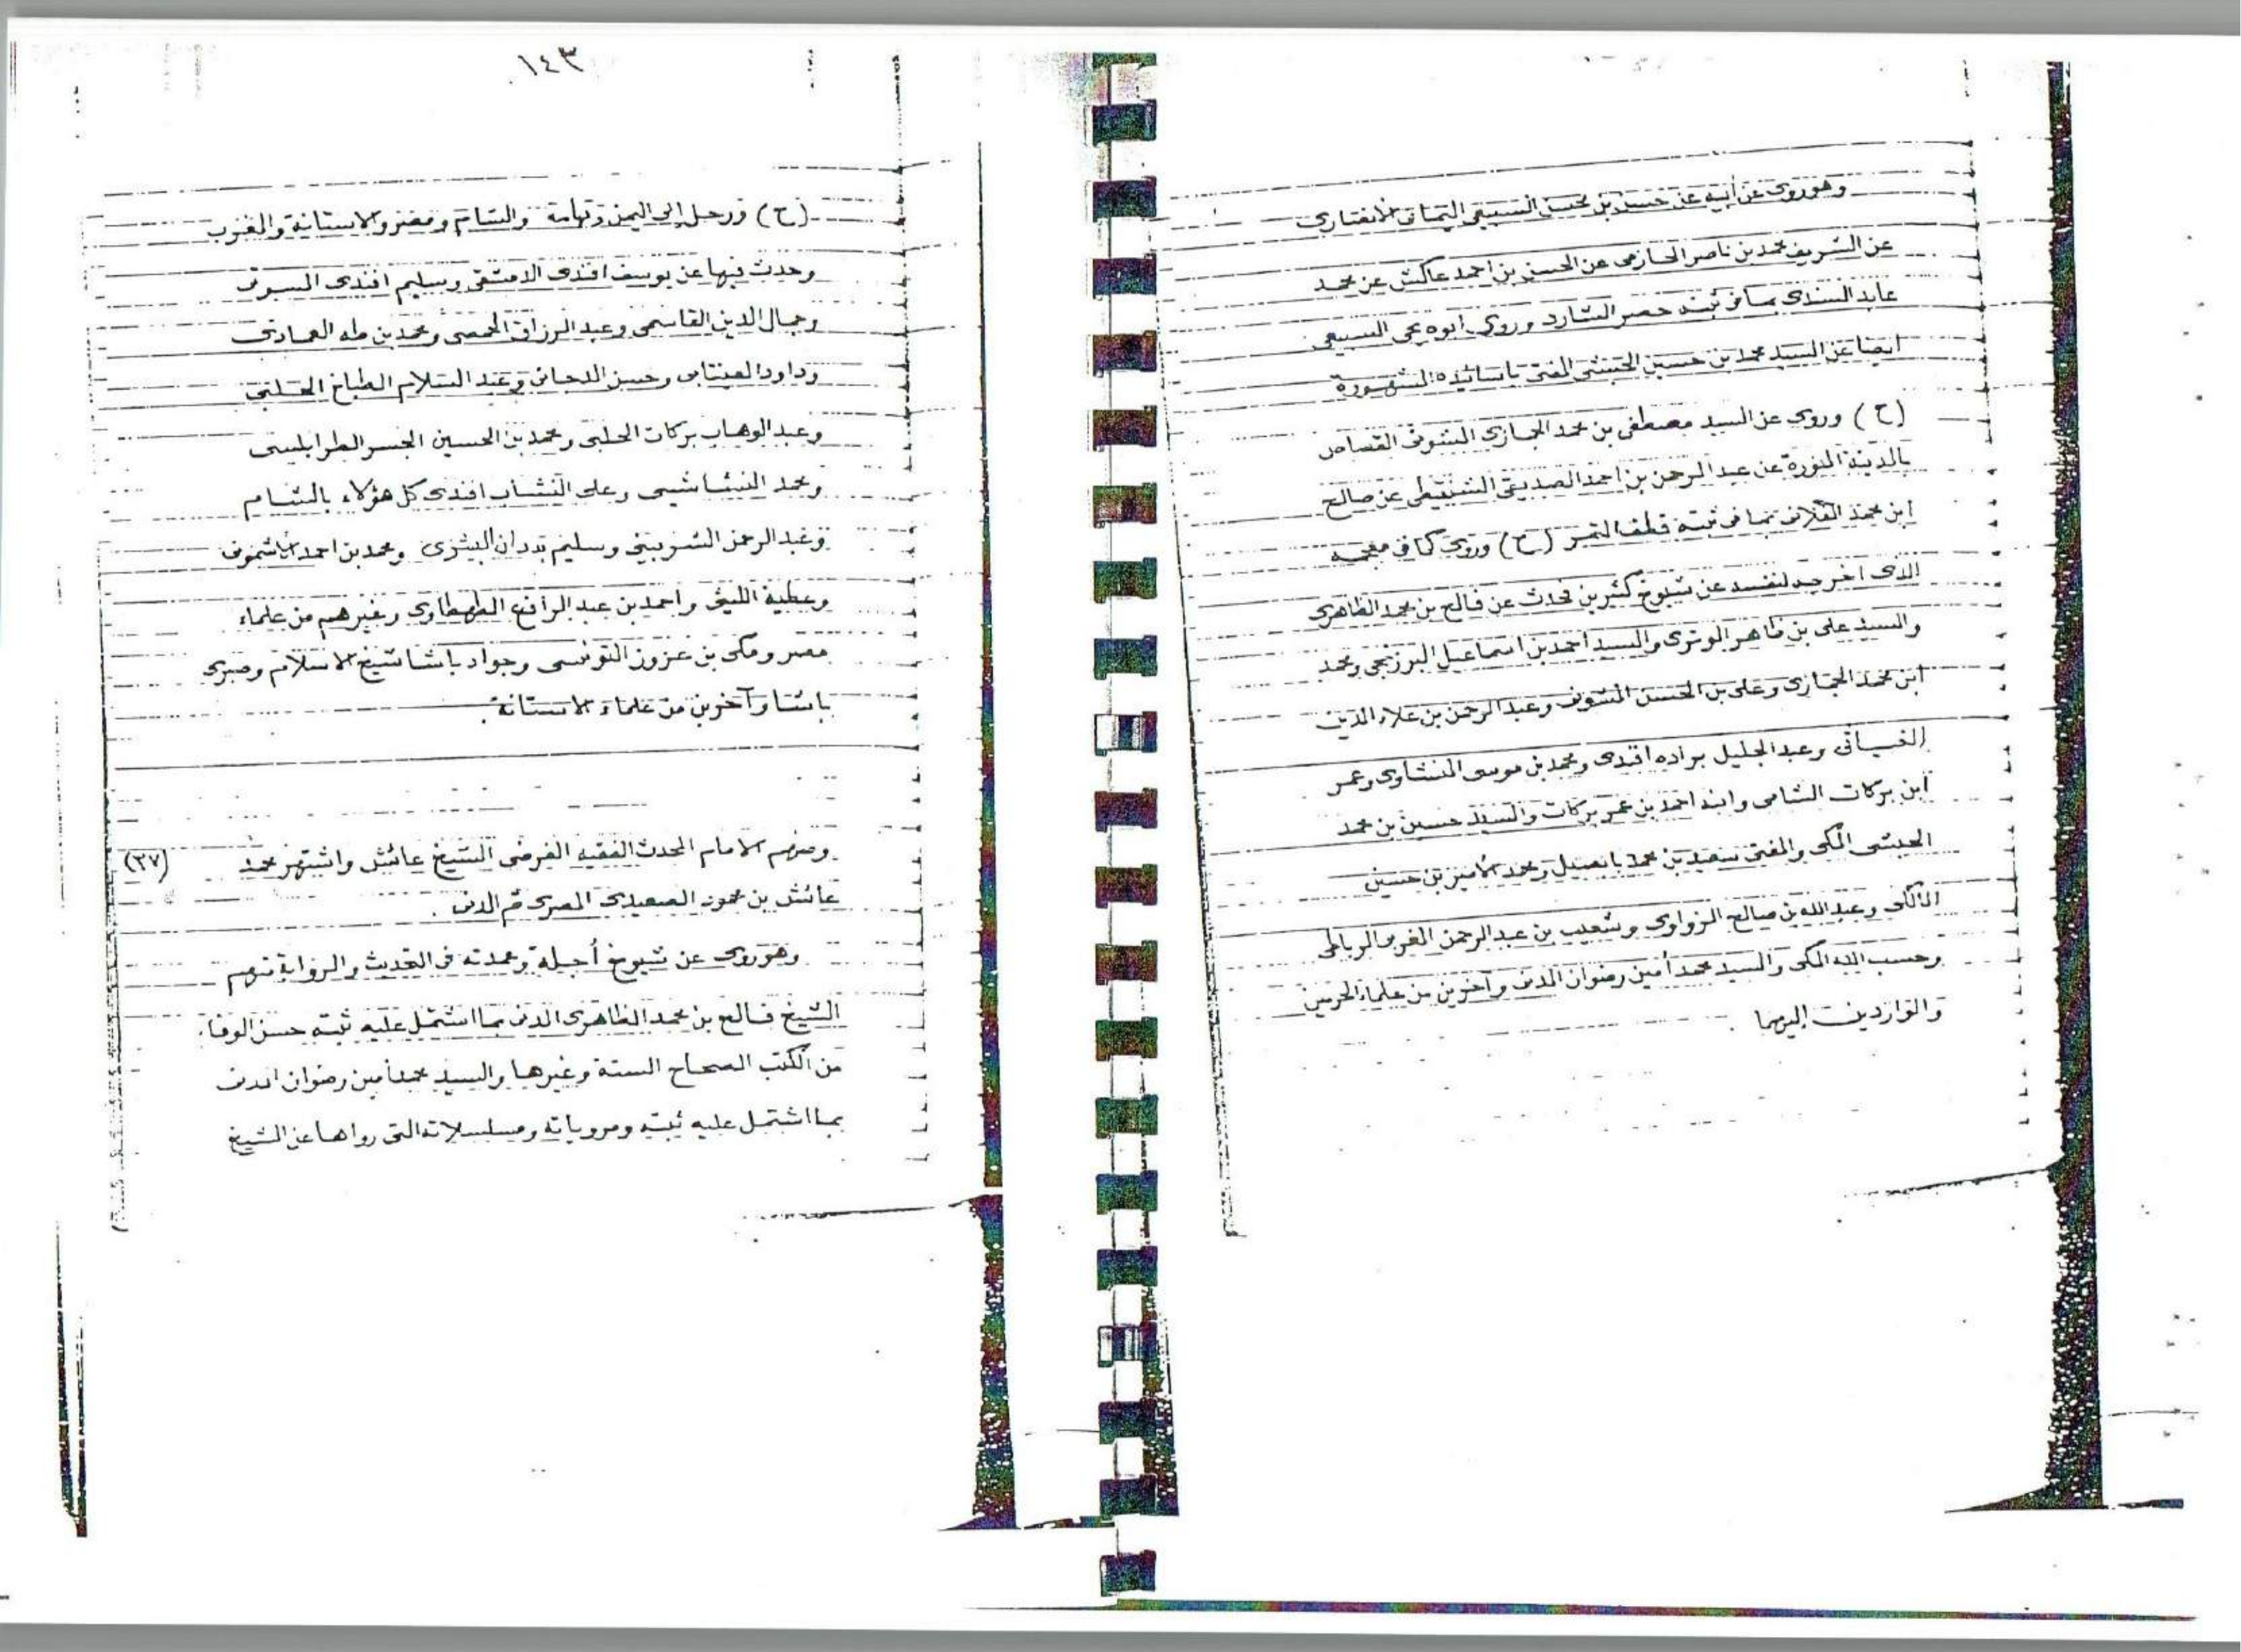 وهو روى عن أبيه عن حسين بن محسن السبيعي اليماني الانصاري
عن الشريف محمد بن ناصر الحازمي عن الحسن بن احمد عاكش عن محمد
عابد السندي بما في ثبته حصر الشارد وروى ابوه يحي السبيعي
ايضا عن السيد محمد بن حسين الحبشي المفتي باسانيده المشهورة
(ح) وروى عن السيد مصطفى بن محمد الحجازي الشوني القصاص
بالمدينة المنورة عن عبد الرحمن بن احمد الصديقي الشنقيطي عن صالح
ابن محمد الفلاني بما في ثبته قطف الثمر (ح) وروى كما في معجمه
الذى اخرجه لنفسه عن شيوخ كثيرين فحدث عن فالح بن محمد الظاهرى
والسيد على بن ظاهر الوترى والسيد احمد بن اسماعيل البرزنجي ومحمد
ابن محمد الحجازى وعلى بن الحسن الشونى وعبد الرحمن بن علاء الدين
وعبد الجليل براده افندى ومحمد بن موسى المنشاوى وعمر
ابن بركات الشامى وابنه احمد بن عمر بركات والسيد حسين بن محمد
الحبشى المكى والمفتى سعيد بن محمد بابصيل ومحمد الأمير بن حسين
المالكى وعبد الله بن صالح الزواوى وشعيب بن عبد الرحمن المغربى الرباطى
وحسب الله المكى والسيد محمد أمين رضوان المدنى وآخرين من علماء الحرمين
والواردين إليهما
١٤٣
(ح) ورحل إلى اليمن وتهامة والشام ومصر والاستانة والمغرب
وحدث فيها عن يوسف افندى الدمشقى وسليم افندى
وجمال الدين القاسمى وعبد الرزاق الحمصى ومحمد بن طه العمادى
وداود العينتابى وحسن الدجانى وعبد السلام الطباخ الحلبى
وعبد الوهاب بركات الحلبى ومحمد بن الحسين الجسر الطرابلسى
ومحمد النشاشيبى وعلى النشاب افندى كل هؤلاء بالشام
وعبد الرحمن الشربينى وسليم بدران البشرى ومحمد بن احمد الاشمونى
وعطية الليثى واحمد بن عبد الرافع الطهطاوى وغيرهم من علماء
مصر ومكى بن عزوز التونسى وجواد باشا شيخ الاسلام وصبرى
باشا وآخرين من علماء الاستانة .
(٣٧) ومنهم الامام المحدث الفقيه الفرضى الشيخ عائش واشتهر محمد
عائش بن محمود الصعيدى المصرى ثم المدنى .
وهو روى عن شيوخ أجلة وعمدته فى التحديث والرواية منهم
الشيخ فالح بن محمد الظاهرى المدنى بما اشتمل عليه ثبته حسن الوفاء
من الكتب الصحاح الستة وغيرها والسيد محمد أمين رضوان المدنى
بما اشتمل عليه ثبته ومروياته ومسلسلاته التى رواها عن الشيخ